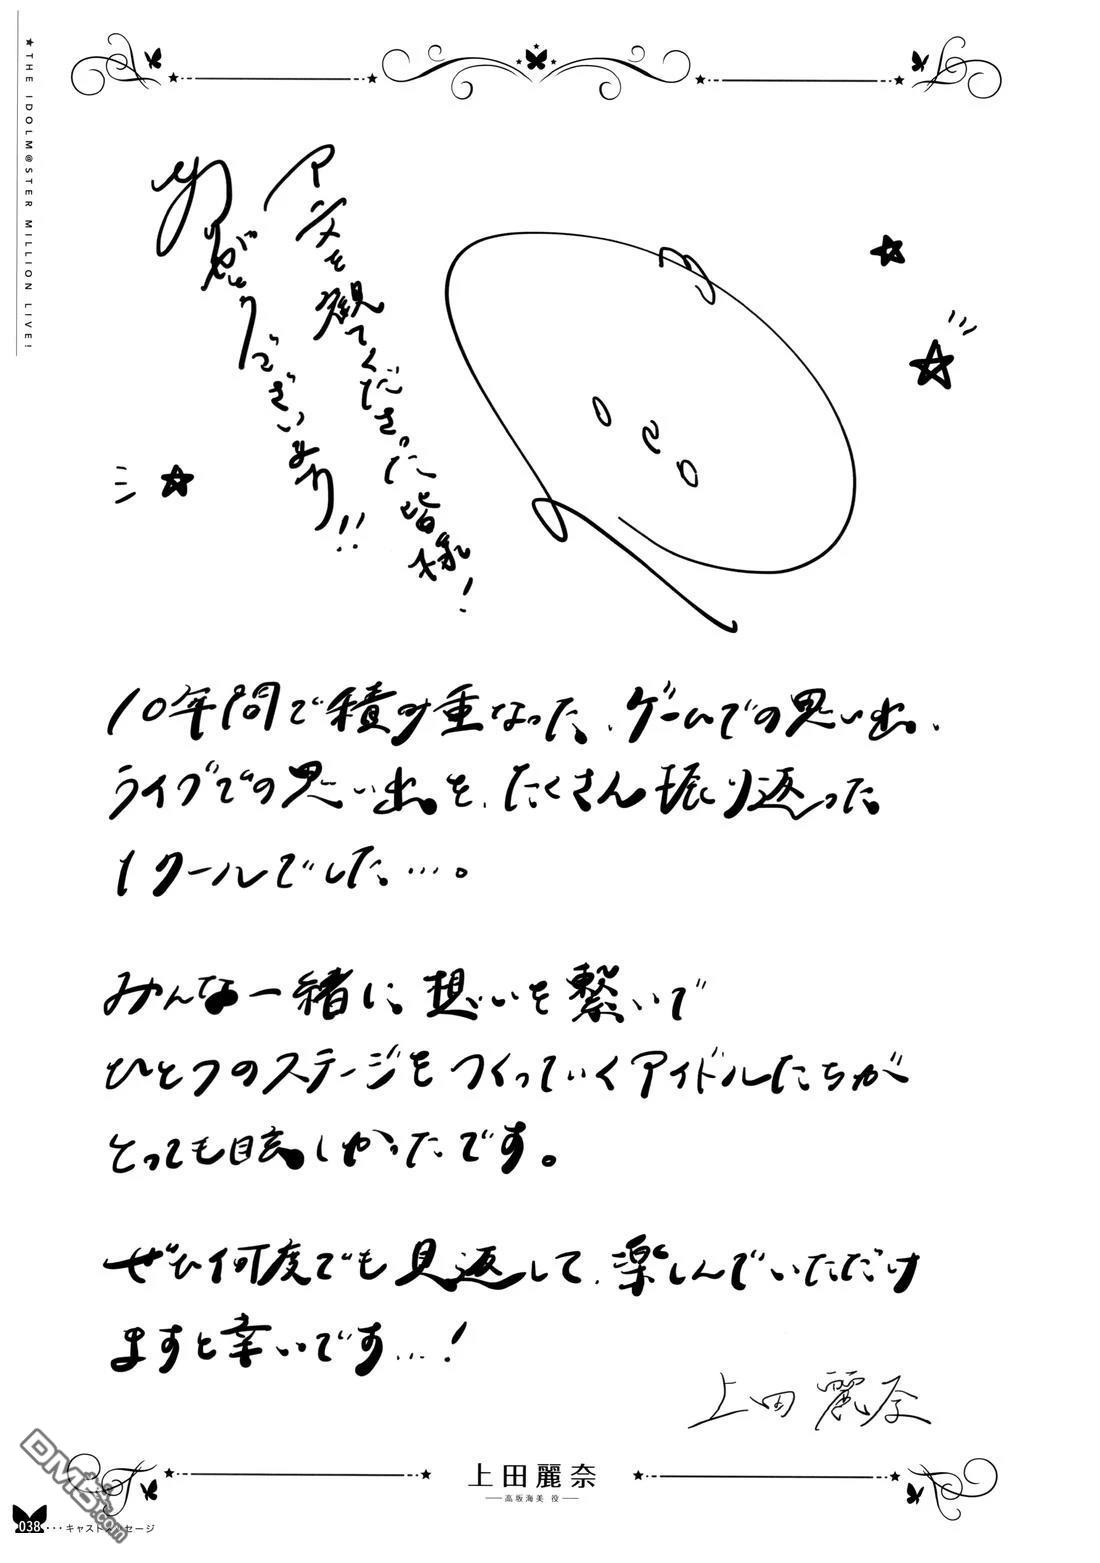 ★THE IDOLM@STER MILLION LIVE!
アニメを観てくださった皆様!
ありがとうございます!!
10年間で積み重なった、ゲームでの思い出、
ライブでの思い出を、たくさん振り返った
1クールでした…。
みんな一緒に想いを繋いで
ひとつのステージをつくっていくアイドルたちが
とっても眩しかったです。
ぜひ何度でも見返して、楽しんでいただけ
ますと幸いです…!
上田麗奈
上田麗奈
高坂海美 役
038 ･･･キャストメッセージ